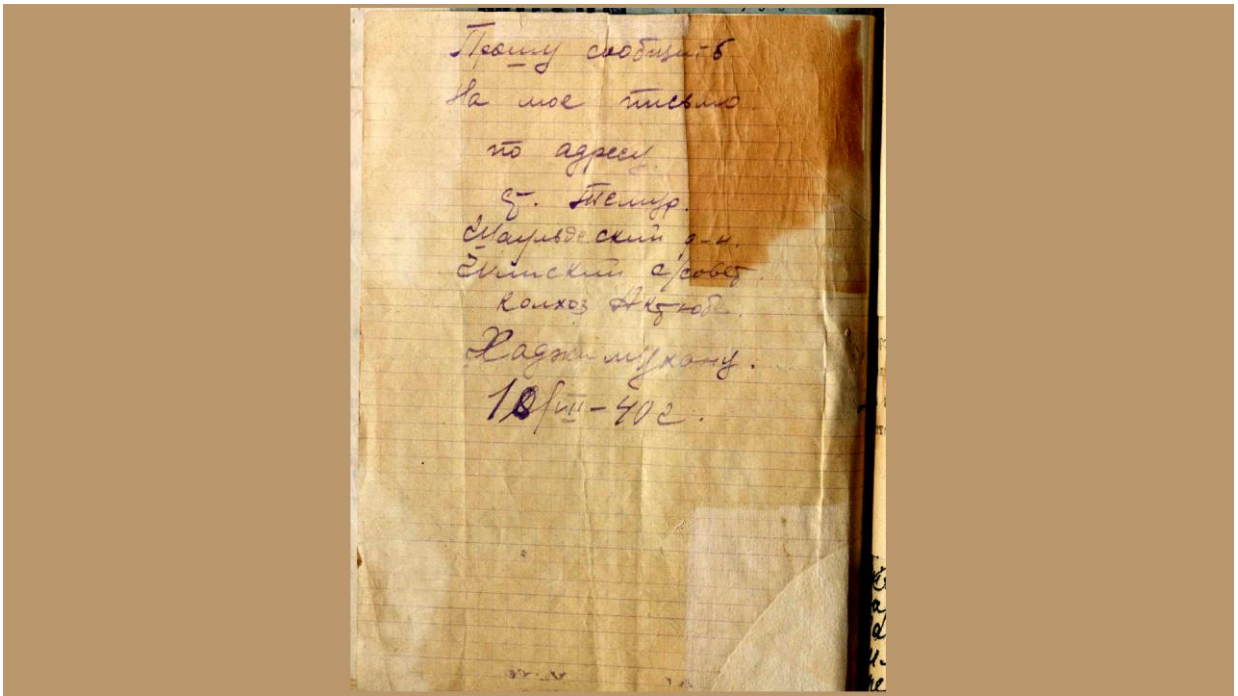 Прошу сообщить
На мое письмо
по адресу
ст. Темур.
Шаульдеский р-н.
с/совет.
колхоз Актюбе.
Хаджимухану.
10/VIII-40г.